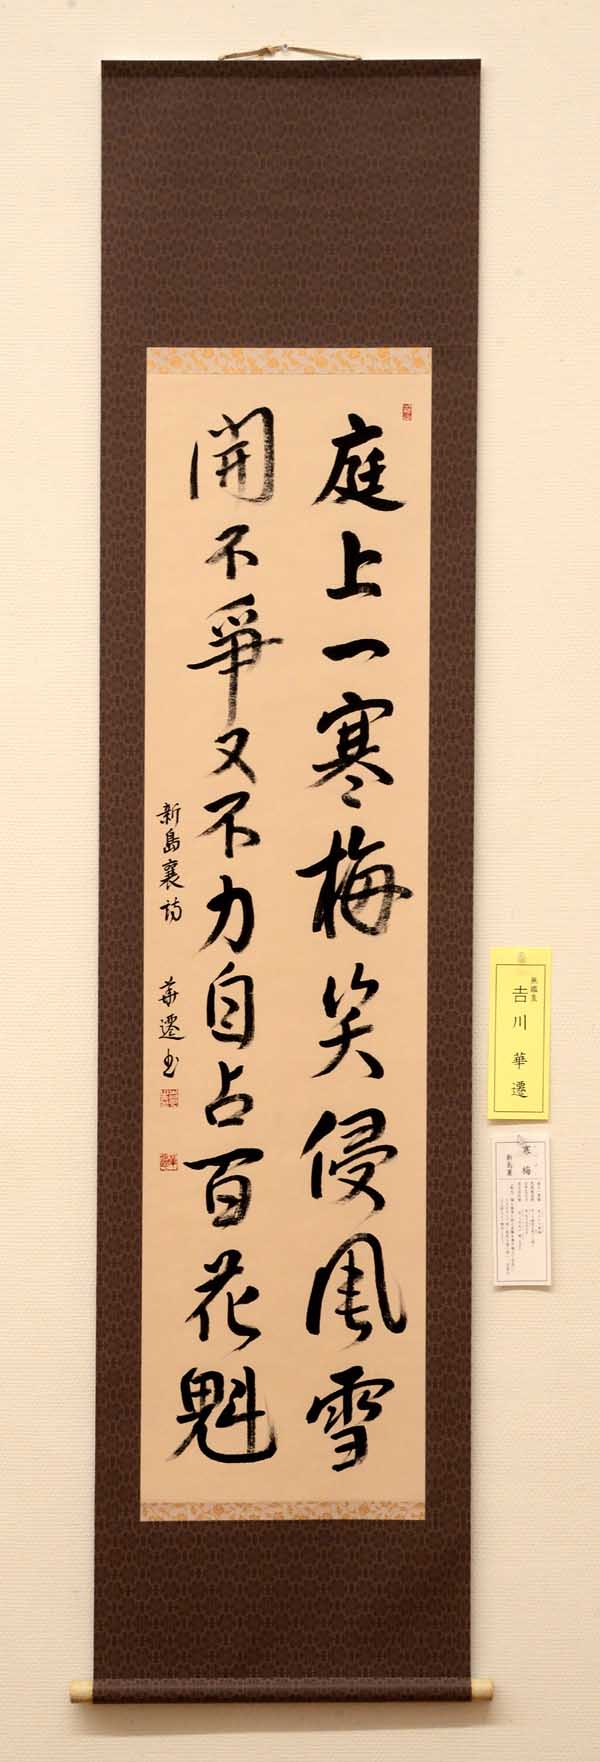 庭上一寒梅笑侵風雪
開不爭又不力自占百花魁
新島襄詩 華遷書
無鑑査
吉川華遷
寒梅
新島襄